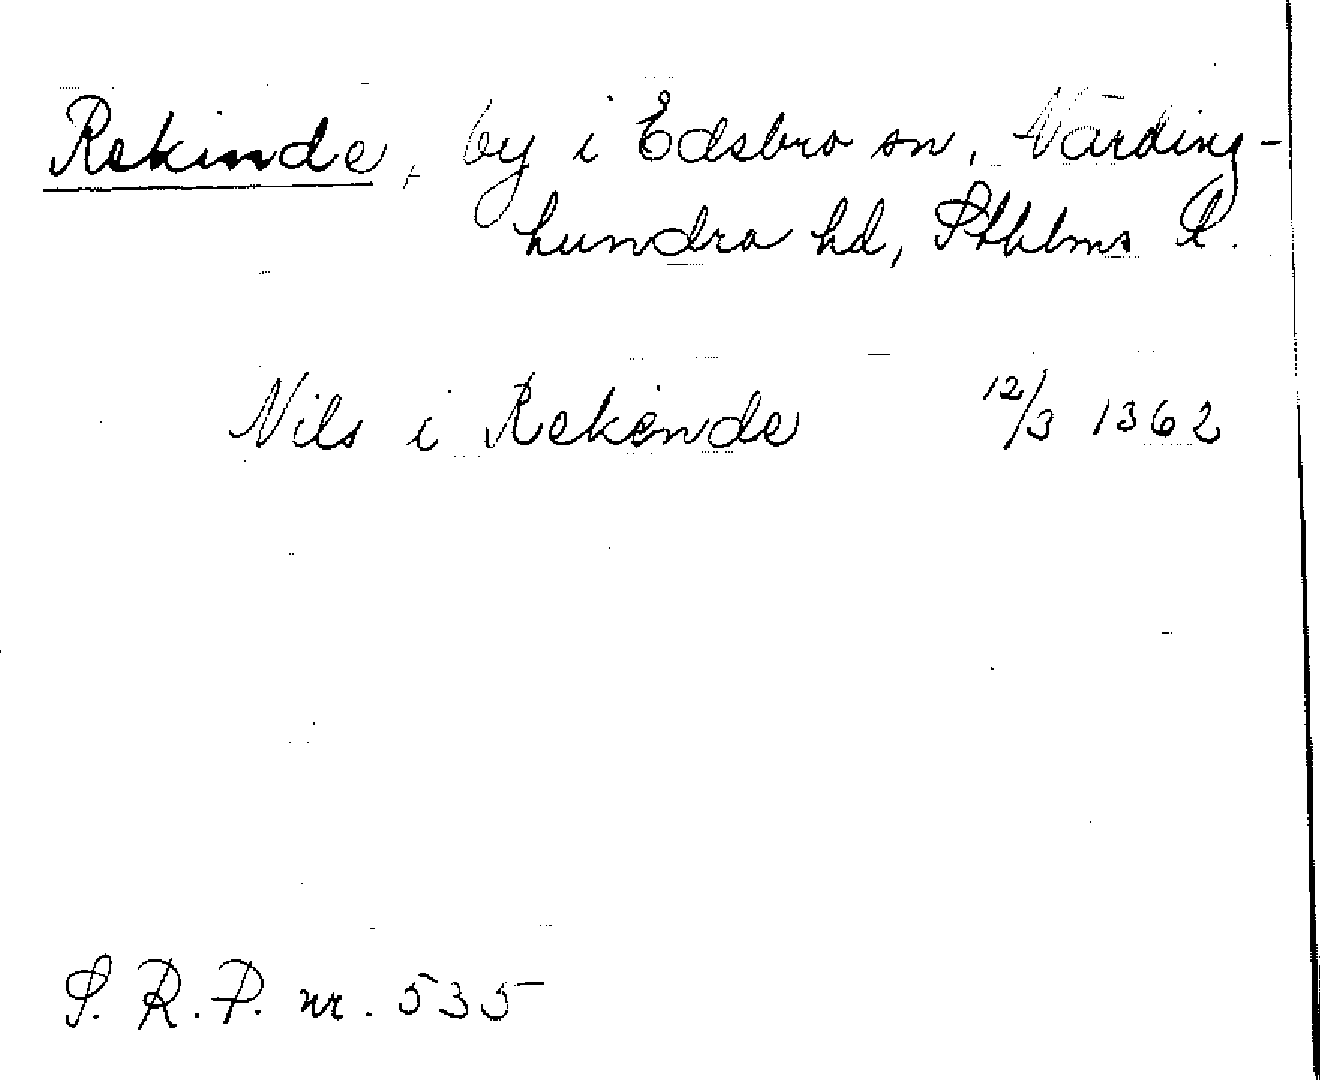 Rekinde, by i Edsbro sn, Närding-
hundra hd, Sthlms l.
Nils i Rekinde 12/3 1362
S. R. P. nr. 535